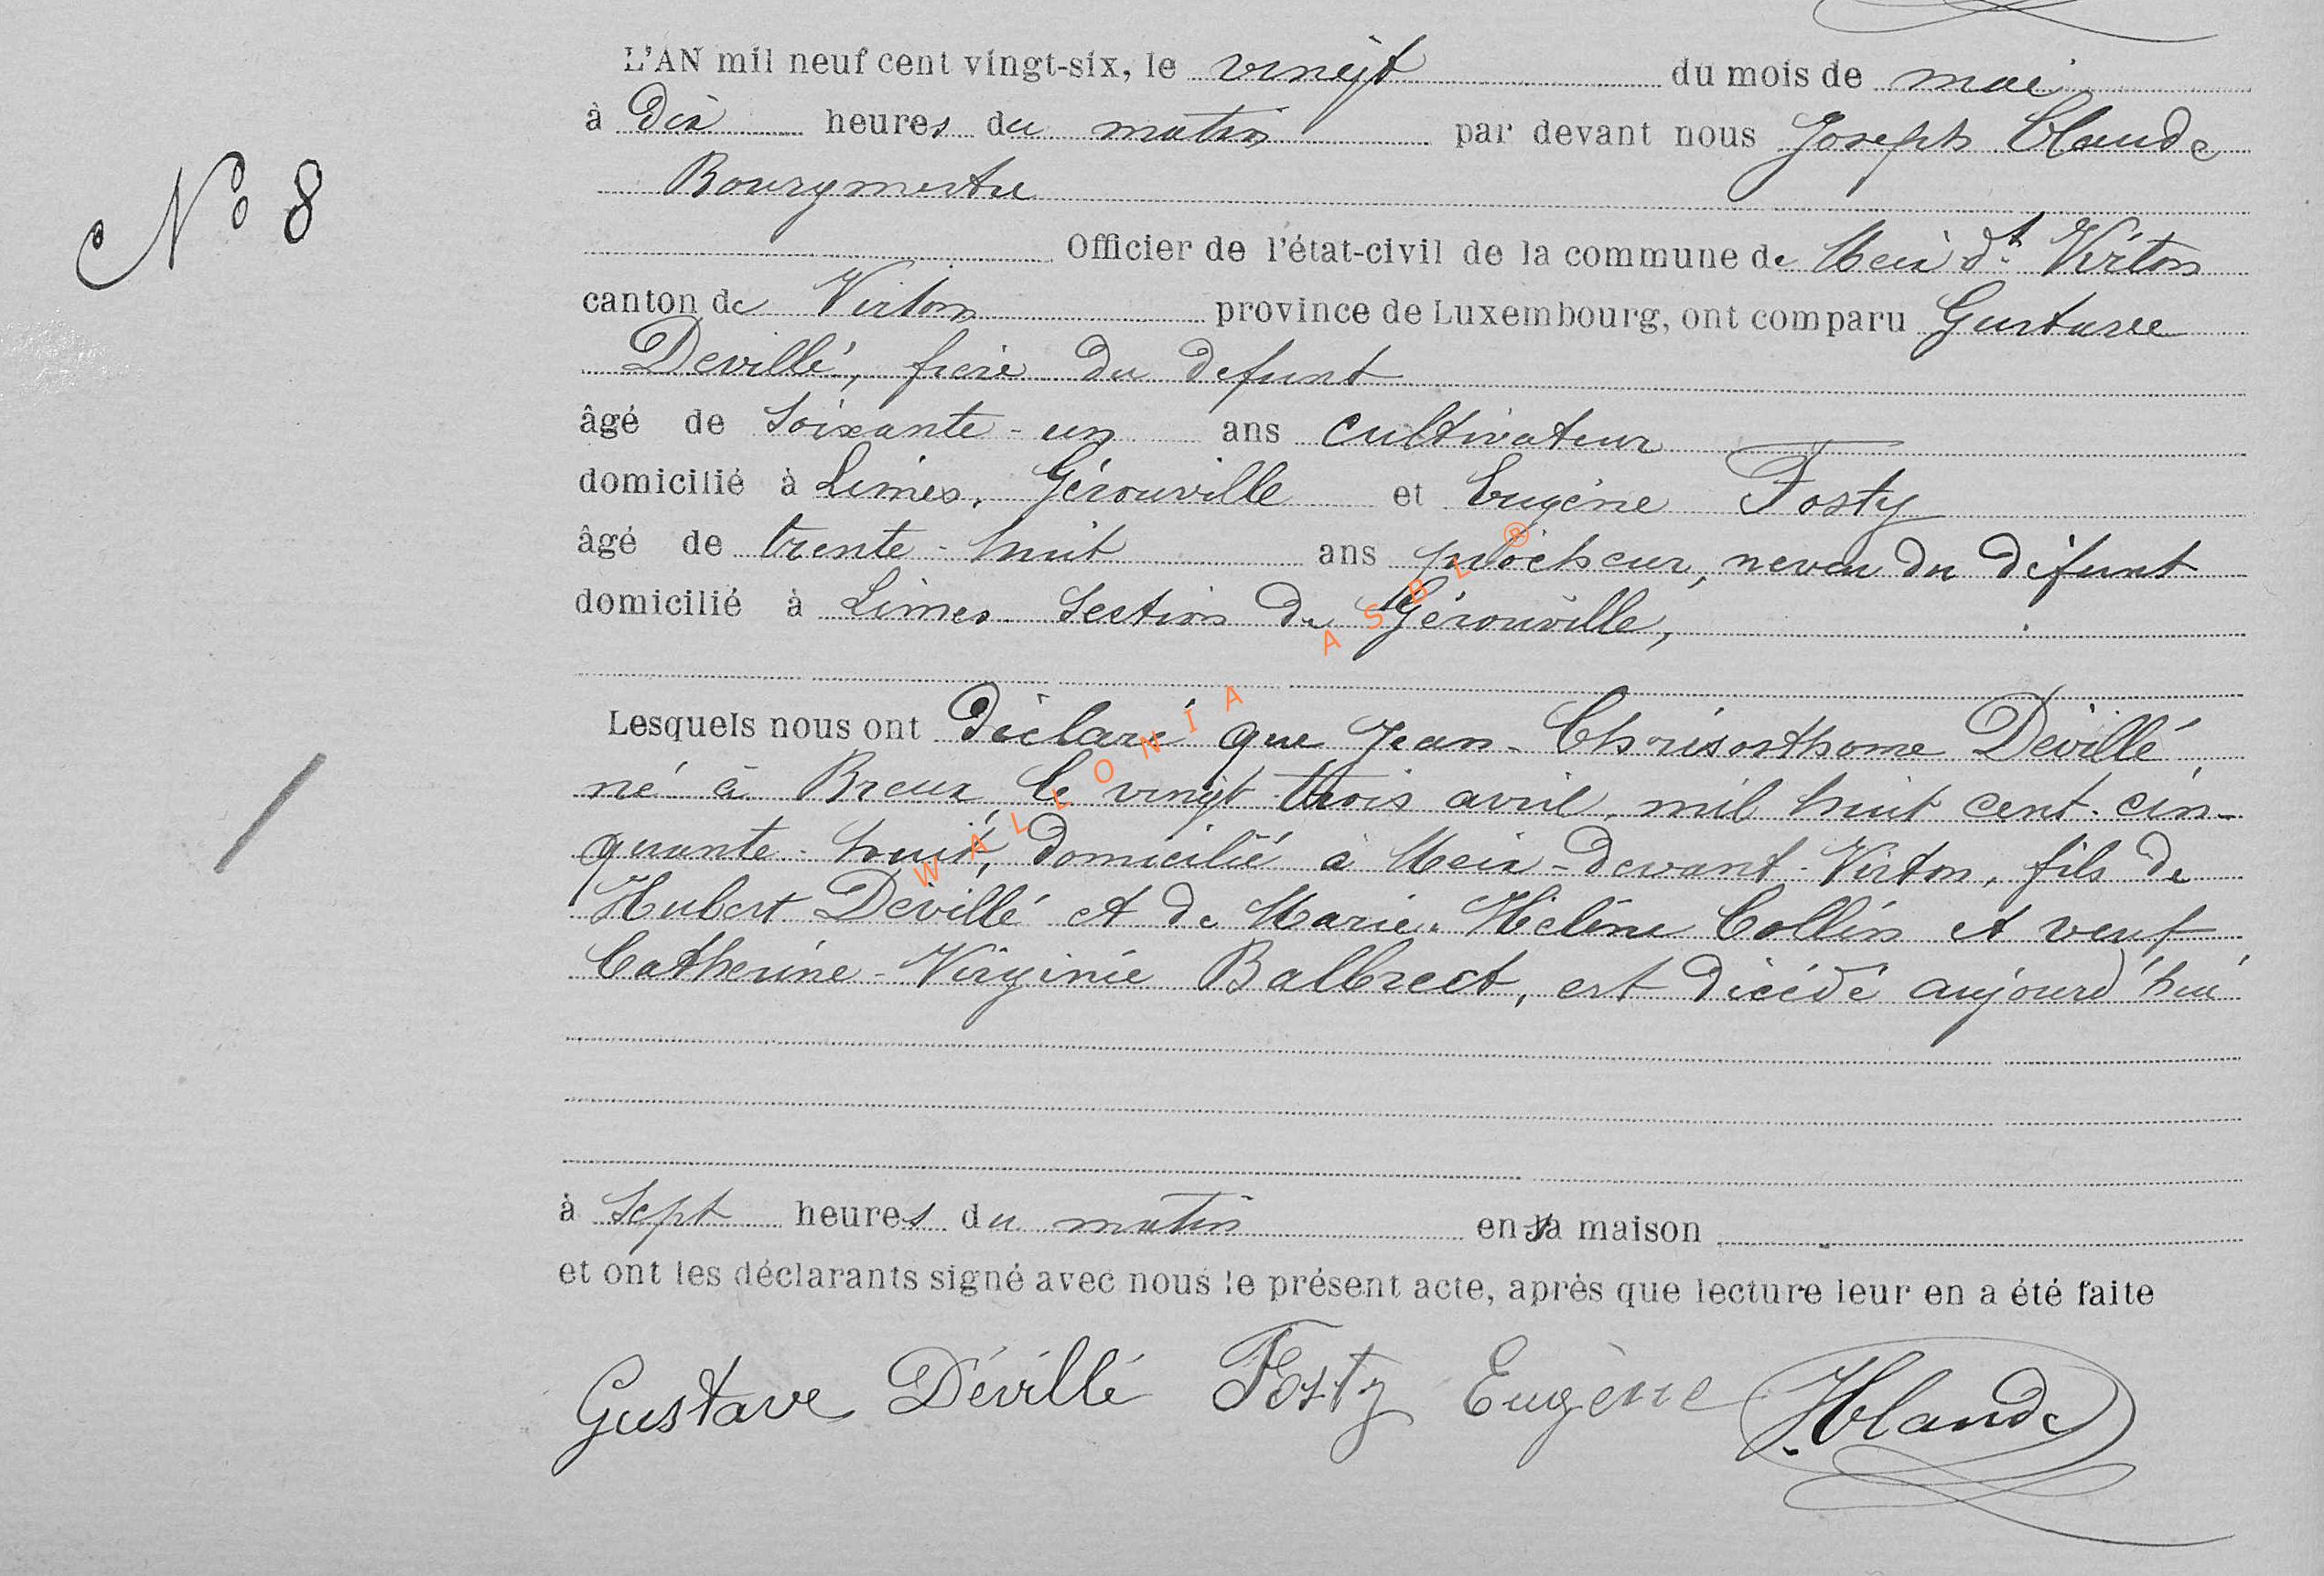 L'AN mil neuf cent vingt-six, le vingt du mois de mai
à dix heures du matin par devant nous Joseph Claude
N° 8
Bourgmestre
Officier de l'état-civil de la commune de Meix dt Virton
canton de Virton province de Luxembourg, ont comparu Gustave
Devillé, frère du defunt
âgé de soixante-un ans cultivateur
domicilié à Limes, Gérouville et Eugène Fosty
âgé de trente-huit ans neveu du défunt
domicilié à Limes section de Gérouville,
WALLONIA ASBL ®
Lesquels nous ont déclaré que Jean-Chrisosthome Dévillé
né à Breux, le vingt-trois avril, mil huit cent-cin-
quante-huit, domicilié à Meix-devant-Virton, fils de
Hubert Dévillé et de Marie-Hélène Collin et veuf
Catherine-Virginie Balbrect, est décédé aujourd'hui
à sept heures du matin en sa maison
et ont les déclarants signé avec nous le présent acte, après que lecture leur en a été faite
Gustave Dévillé Fosty Eugène JClaude